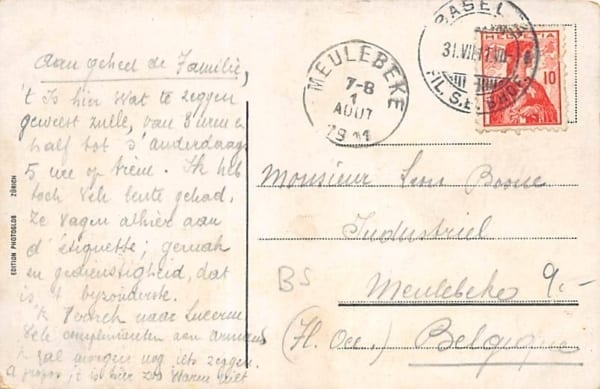 Aan geheel de Familie,
't Is hier wat te zeggen
geweest zulle, van 8 uren en
half tot 's anderdaags
5 ure op trein. Ik heb
toch vele leute gehad.
Ze vagen alhier aan
d'étiquette; gemak
en gedienstigheid, dat
is 't bijzonderste.
'k Vertrek naar Lucerne
Vele complimenten aan
'k Zal morgen nog iets zeggen.
A propos, 't is hier zoo warm niet
EDITION PHOTOGLOB ZÜRICH
MEULEBEKE
7-8
1
AOUT
1911
BASEL
31.VII.11
FIL.S.B.BHOF
HELVETIA
10
Monsieur Leon Boone
Industriel
Meulebeke
(Fl. Occ.) Belgique
BS
9.-